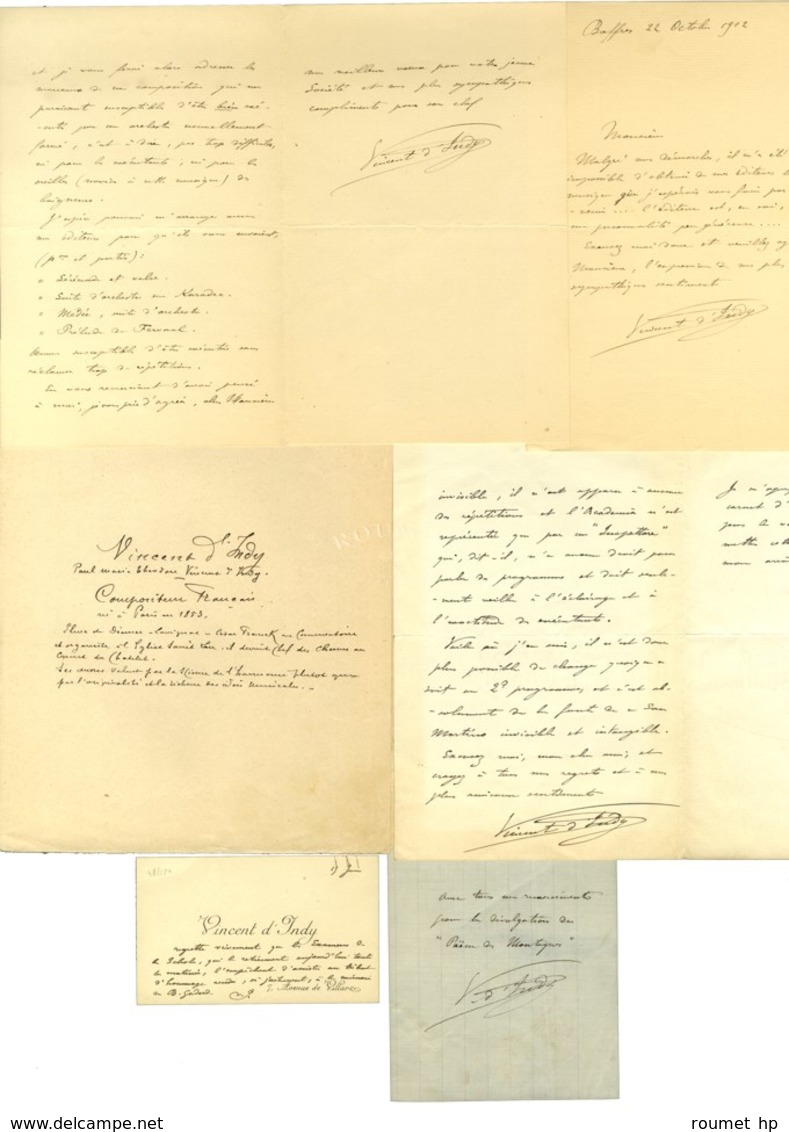 et je vous ferai alors adresser les
morceaux de ma composition qui me
paraissent susceptible d'être bien exé-
-cutés par un orchestre nouvellement
formé, c'est à dire, pas trop difficiles,
ni pour les exécutants, ni pour les
oreilles (novices à cette musique) des
baigneurs.
J'espère pouvoir m'arranger avec
mes éditeurs pour qu'ils vous envoient,
et parties) :
" Sérénade et valse.
" Suite d'orchestre sur Karadec.
" Médée, suite d'orchestre.
" Prélude de Fervaal.
susceptible d'être exécutés sans
réclamer trop de répétitions.
En vous remerciant d'avoir pensé
à moi, je vous prie d'agréer, cher Monsieur
mes meilleurs voeux pour votre jeune
Société et mes plus sympathiques
compliments pour son chef
Vincent d'Indy
Boffres 22 Octobre 1902
Monsieur
Malgré mes démarches, il m'a été
impossible d'obtenir de mes éditeurs la
musique que j'espérais vous faire par-
-venir ... l'éditeur est, en soi,
une personnalité peu généreuse ....
Excusez moi donc et veuillez
Monsieur, l'expression de mes plus
sympathiques sentiments
Vincent d'Indy
Vincent d'Indy
Paul Marie Théodore Vincent d'Indy.
Compositeur Français
né à Paris en 1853.
Elève de Diemer - Lavignac - César Franck au Conservatoire
et organiste à l'Eglise Saint Leu. il devint Chef des Choeurs au
Concert du Chatelet.
Ses oeuvres valent par la Science de l'harmonie plutôt que
par l'originalité et la richesse des idées musicales. -
invisible, il n'est apparu à aucune
des répétitions et l'Academia n'est
représentée que par un "Inspettore"
qui, dit-il, n'a aucun droit pour
parler de programmes et doit seule-
-ment veiller à l'éclairage et à
l'exactitude des exécutants.
Voilà où j'en suis, il n'est donc
plus possible de changer quoique ce
soit au 2d programme, et c'est ab-
-solument de la faute de ce San
Martino invisible et intangible.
Excusez moi, mon cher ami, et
croyez à tous mes regrets et à mes
plus amicaux sentiments
Vincent d'Indy
Vincent d'Indy
regrette vivement que les Examens de
la Schola, qui le retiennent aujourd'hui toute
la matinée, l'empêchent d'assister au débat
d'hommage rendu, si justement, à la mémoire
de B. Godard.
7, Avenue de Villars
Avec tous mes remerciements
pour la divulgation du
"Poème des Montagnes"
V. d'Indy
roumet hp